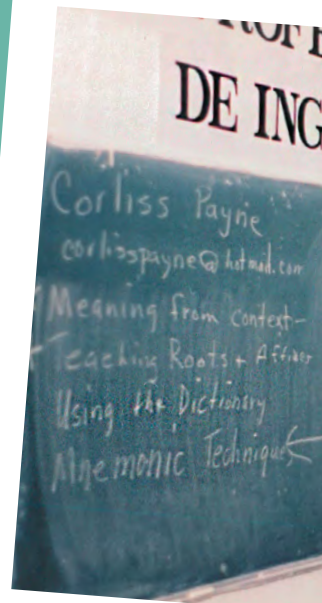 DE ING
Corliss Payne
corlisspayne@hotmail.com
Meaning from context-
Teaching Roots + Affixes
Using the Dictionary
Mnemonic Techniques